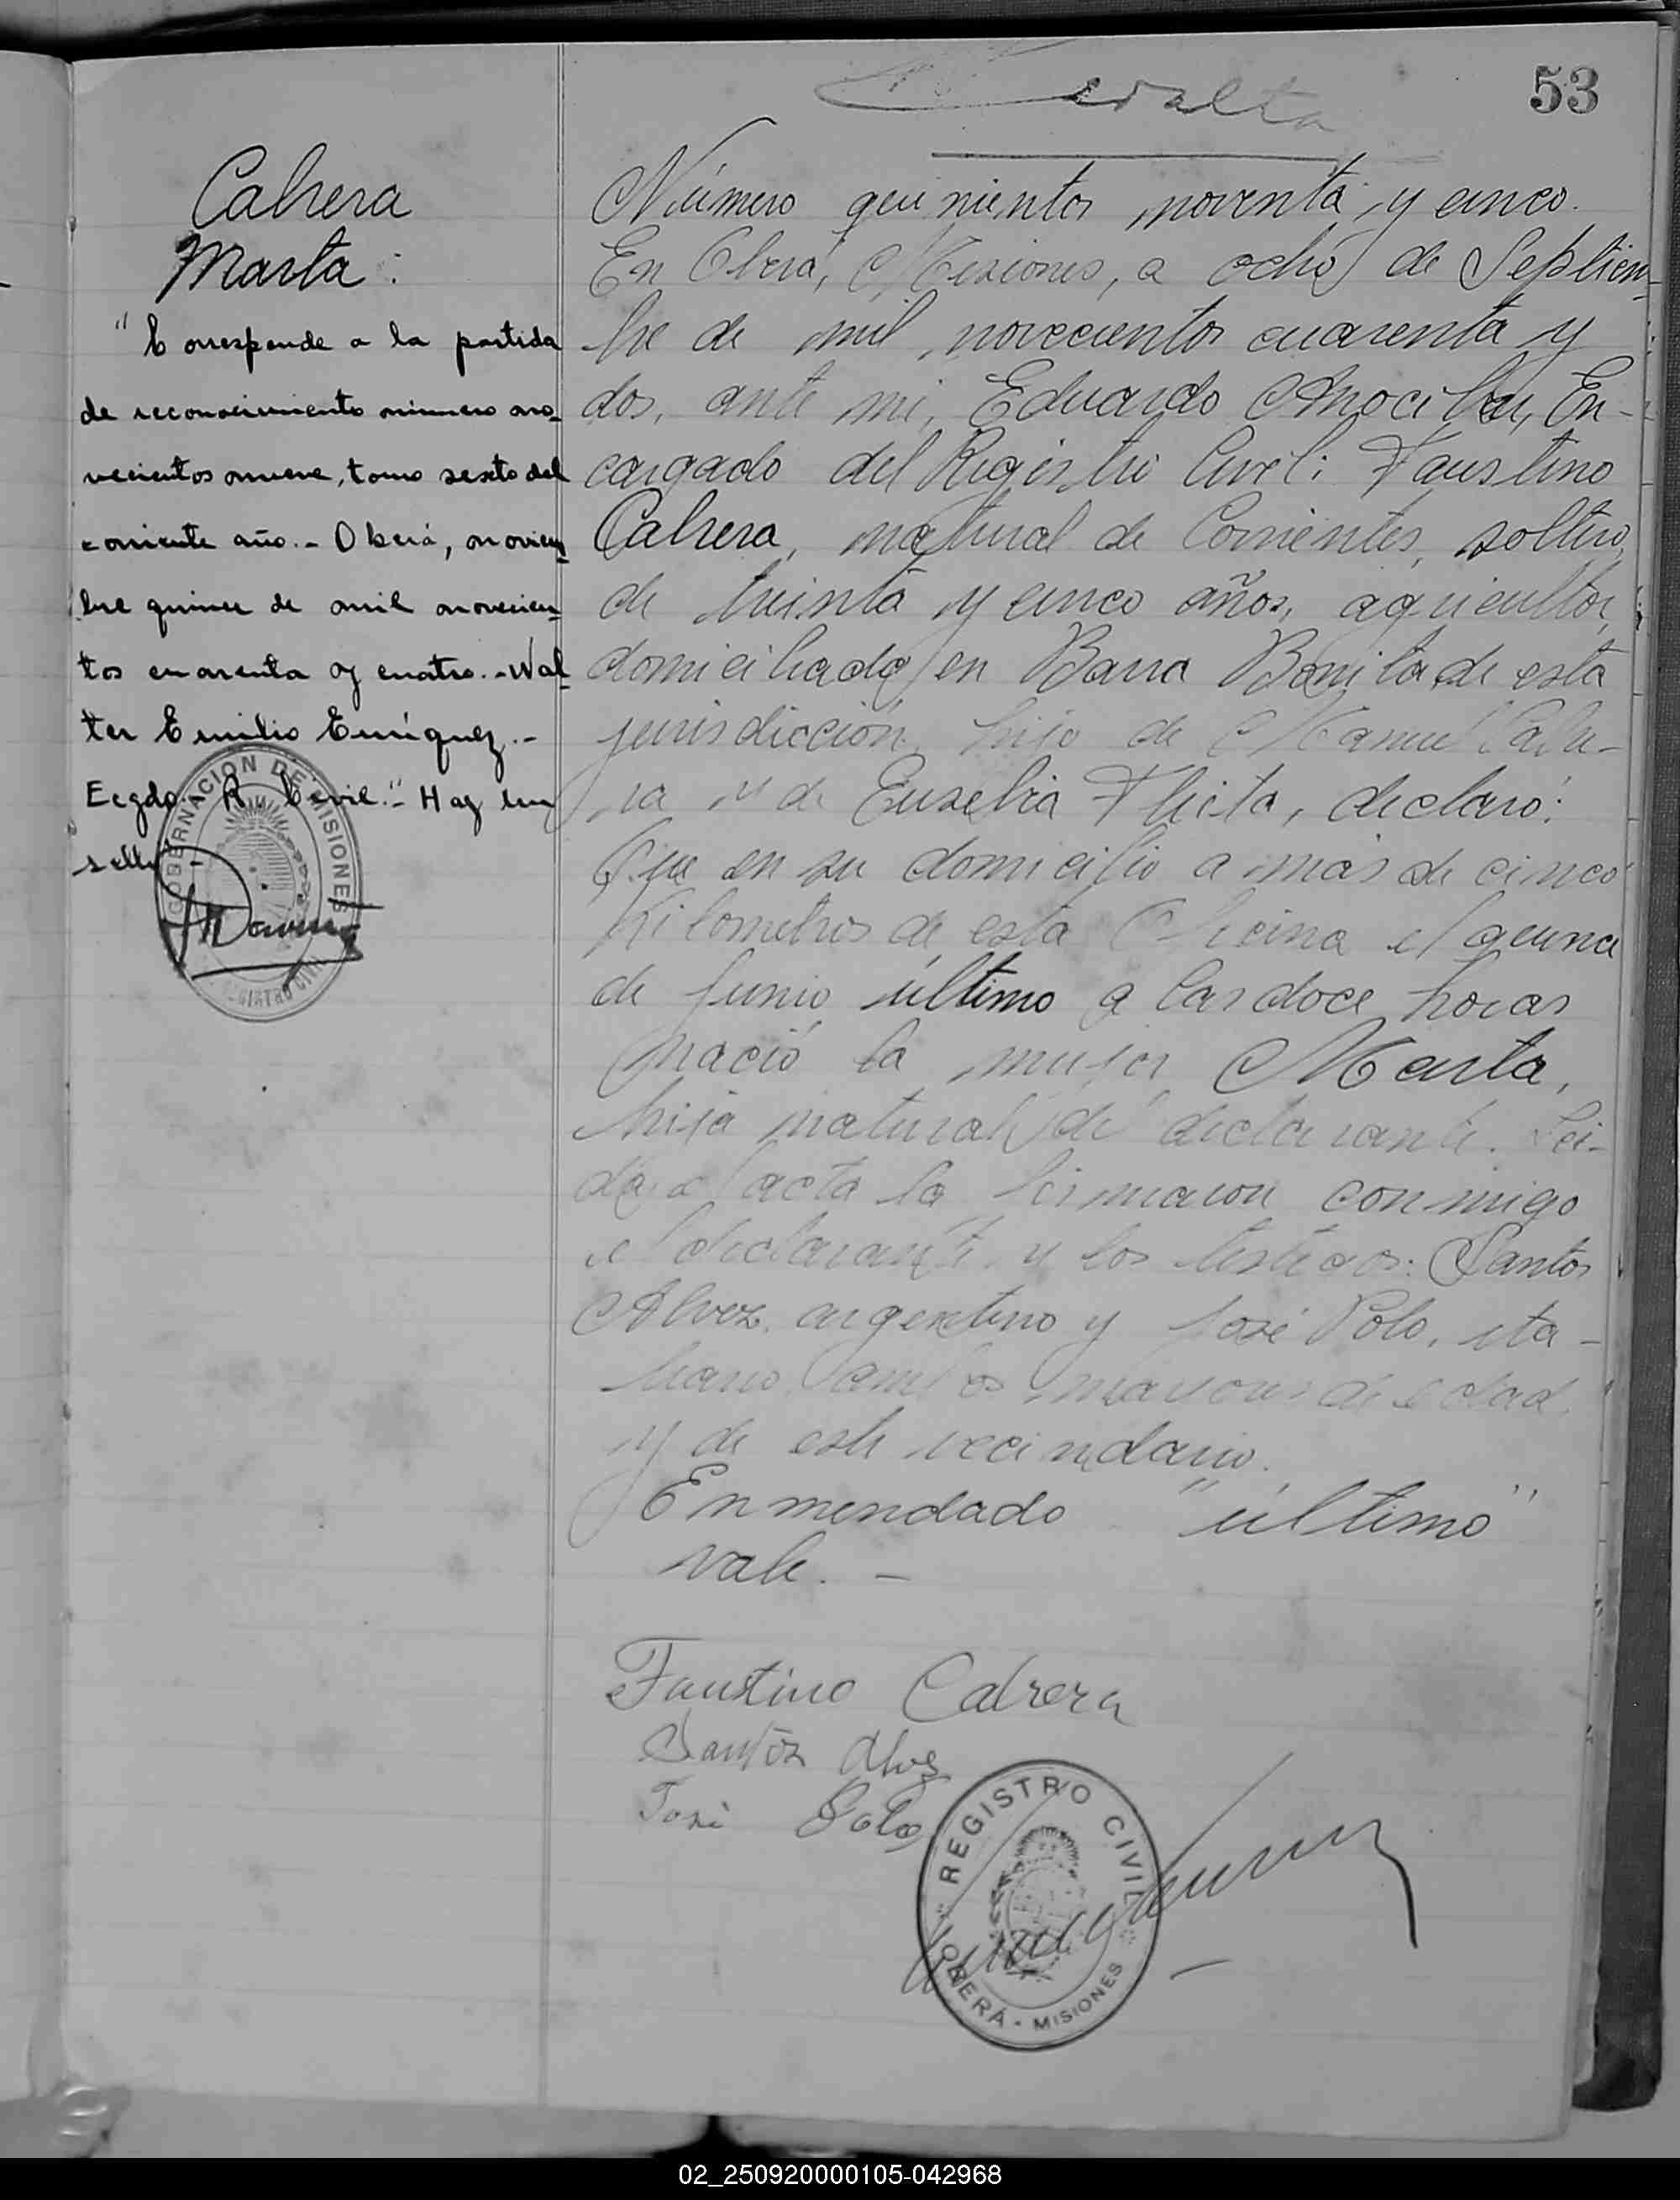 53
Cabrera
Marta:
"Corresponde a la partida
de reconocimiento número no-
vecientos nueve, tomo sexto del
corriente año.- Oberá, noviem-
bre quince de mil novecien-
tos cuarenta y cuatro.- Wal-
ter Emilio Enríquez.-
Ecgdo. R. Civil."- Hay un
sello.-
GOBERNACION DE MISIONES
REGISTRO CIVIL
Número quinientos noventa y cinco.
En Oberá, Misiones, a ocho de Septiem-
bre de mil novecientos cuarenta y
dos, ante mi, Eduardo En-
cargado del Registro Civil: Faustino
Cabrera, natural de Corrientes, soltero,
de treinta y cinco años, agricultor,
domiciliado en Barra Bonita de esta
jurisdicción, hijo de Manuel Cabre-
ra y de Eusebia Fleita, declaró:
Que en su domicilio a más de cinco
kilometros de esta Oficina el quince
de Junio último a las doce horas
nació la mujer Marta,
hija natural del declarante. Lei-
da el acta la firmaron conmigo
el declarante y los testigos: Santos
Alvez, argentino y José Polo, ita-
liano, ambos mayores de edad
y de este vecindario.
Enmendado "último"
vale.-
Faustino Cabrera
Santos Alvez
José Polo
REGISTRO CIVIL
OBERÁ - MISIONES
02_250920000105-042968